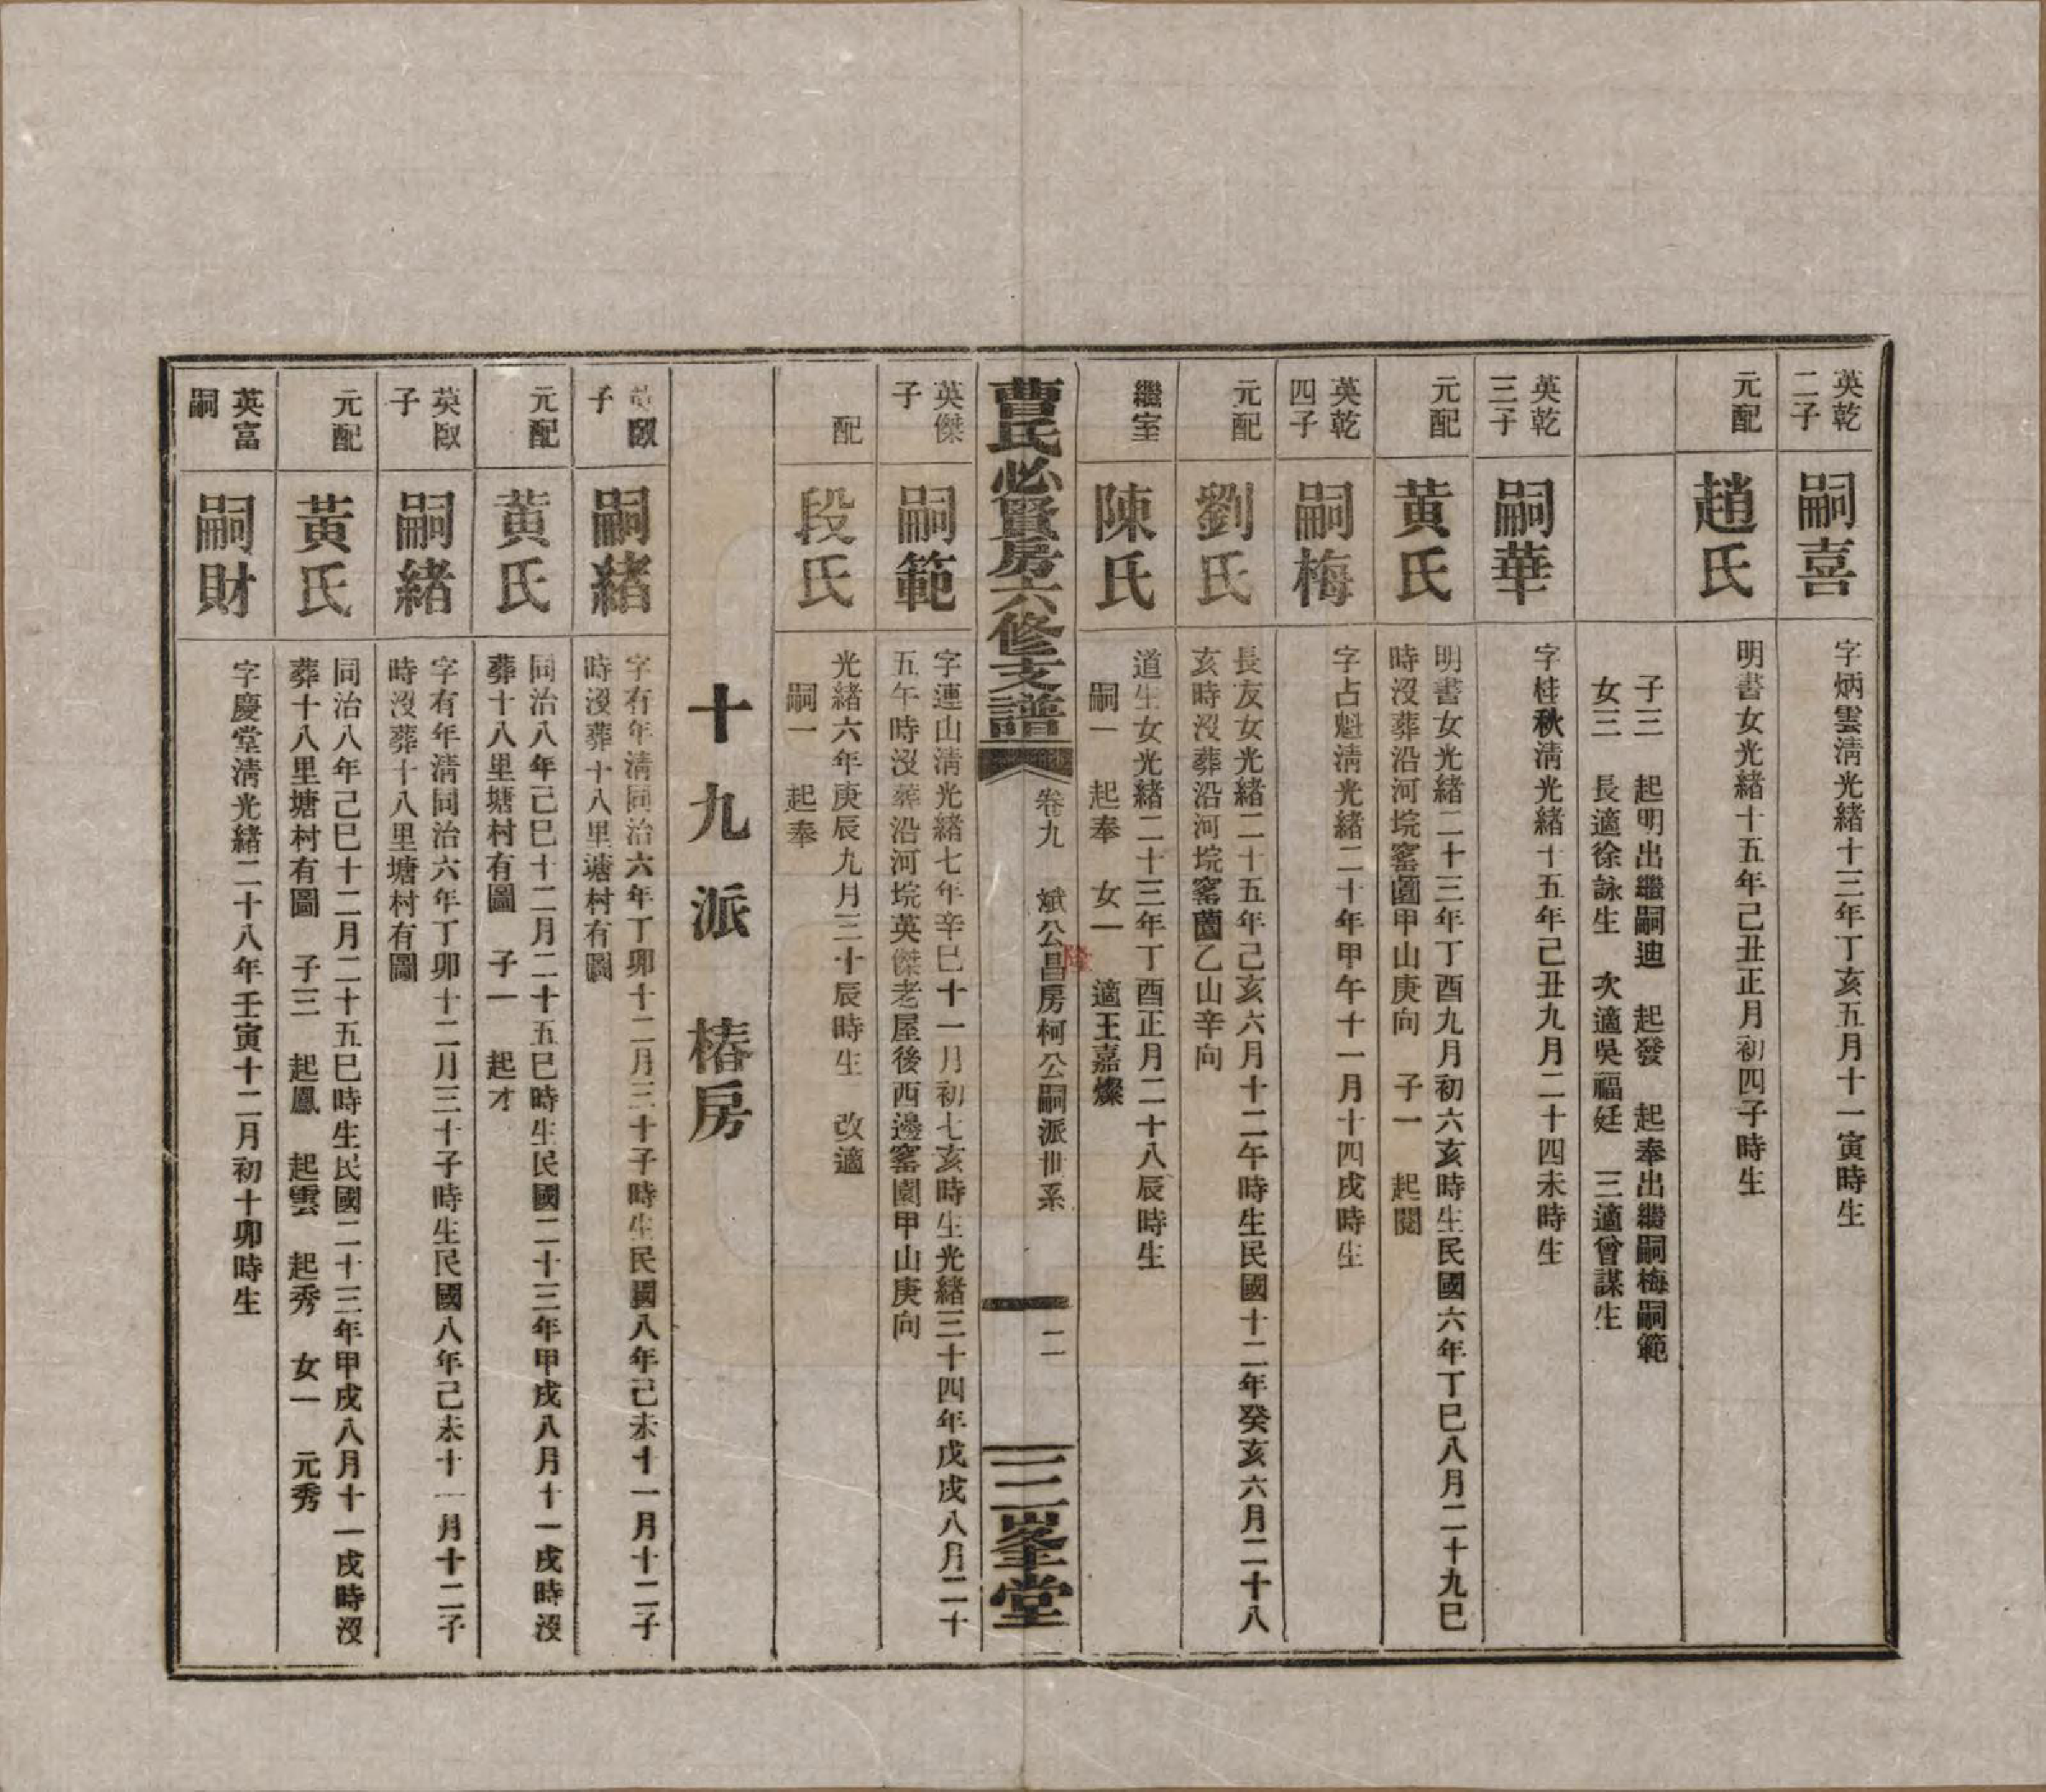 英乾
二子
嗣喜
字炳雲淸光緒十三年丁亥五月十一寅時生
元配
趙氏
明書女光緒十五年己丑正月初四子時生
子三　起明出繼嗣迪　起發　起奉出繼嗣梅嗣範
女三　長適徐詠生　次適吳福廷　三適曾謀生
英乾
三子
嗣華
字桂秋淸光緒十五年己丑九月二十四未時生
元配
黃氏
明書女光緒二十三年丁酉九月初六亥時生民國六年丁巳八月二十九巳
時沒葬沿河垸窰園甲山庚向　子一　起閱
英乾
四子
嗣梅
字占魁淸光緒二十年甲午十一月十四戌時生
元配
劉氏
長友女光緒二十五年己亥六月十二午時生民國十二年癸亥六月二十八
亥時沒葬沿河垸窰薗乙山辛向
繼室
陳氏
道生女光緒二十三年丁酉正月二十八辰時生
嗣一　起奉　女一　適王嘉燦
隆
曹氏必賢房六修支譜
卷九　斌公昌房柯公嗣派世系
二
三峯堂
英傑
子
嗣範
字連山淸光緒七年辛巳十一月初七亥時生光緒三十四年戊戌八月二十
五午時沒葬沿河垸英傑老屋後西邊窰園甲山庚向
配
段氏
光緒六年庚辰九月三十辰時生　改適
嗣一　起奉
十九派　椿房
子
嗣緒
字有年淸同治六年丁卯十二月三十子時生民國八年己未十一月十二子
時沒葬十八里塘村有圖
元配
黃氏
同治八年己巳十二月二十五巳時生民國二十三年甲戌八月十一戌時沒
葬十八里塘村有圖　子一　起才
英
子
嗣緒
字有年淸同治六年丁卯十二月三十子時生民國八年己未十一月十二子
時沒葬十八里塘村有圖
元配
黃氏
同治八年己巳十二月二十五巳時生民國二十三年甲戌八月十一戌時沒
葬十八里塘村有圖　子三　起鳳　起雲　起秀　女一　元秀
英富
嗣
嗣財
字慶堂淸光緒二十八年壬寅十二月初十卯時生